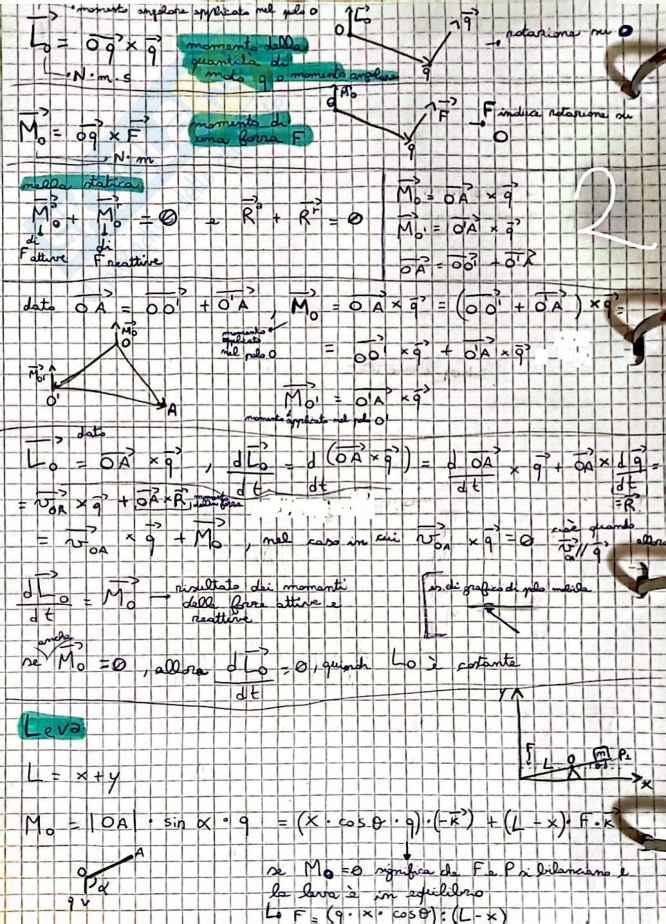 • momento angolare applicato nel polo O
L₀ = Oq × q momento della quantità di moto q o momento angolare → rotazione su O
N·m·s
L₀ O q q
M₀ = Oq × F momento di una forza F → F indica rotazione su O
N·m
M₀ O q F
2
nella statica
M₀ᵃ + M₀ʳ = 0 e Rᵃ + Rʳ = 0
di F attive di F reattive
M₀ = OA × q
M₀' = O'A × q
OA = OO' + O'A
dato OA = OO' + O'A, M₀ = OA × q = (OO' + O'A) × q =
momento applicato nel polo O
= OO' × q + O'A × q
M₀' = O'A × q
momento applicato nel polo O'
M₀ O M₀' O' A
dato
L₀ = OA × q, dL₀/dt = d(OA × q)/dt = d OA/dt × q + OA × dq/dt =
= R
= v₀ₐ × q + OA × R,
= v₀ₐ × q + M₀, nel caso in cui v₀ₐ × q = 0 cioè quando v₀ // q allora
dL₀/dt = M₀ → risultato dei momenti delle forze attive e reattive
es. di grafico di polo mobile
anche
se M₀ = 0, allora dL₀/dt = 0, quindi L₀ è costante
Leva
L = x + y
y x L O m P₁
M₀ = |OA| · sin α · q = (x · cosθ · q) · (-k) + (L - x) · F · k
O A α q
se M₀ = 0 significa che F e P si bilanciano e
la leva è in equilibrio
↳ F = (q · x · cosθ) : (L - x)